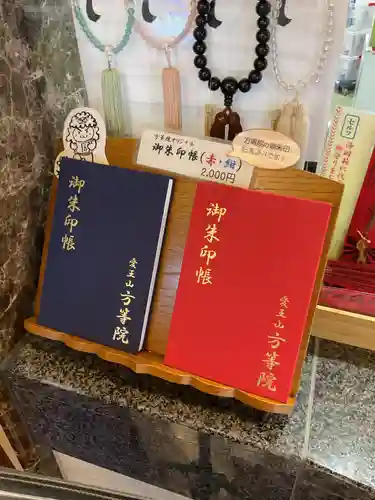 御朱印帳(赤・紺)
2,000円
御朱印帳
愛王山
方等院
御朱印帳
愛王山
方等院